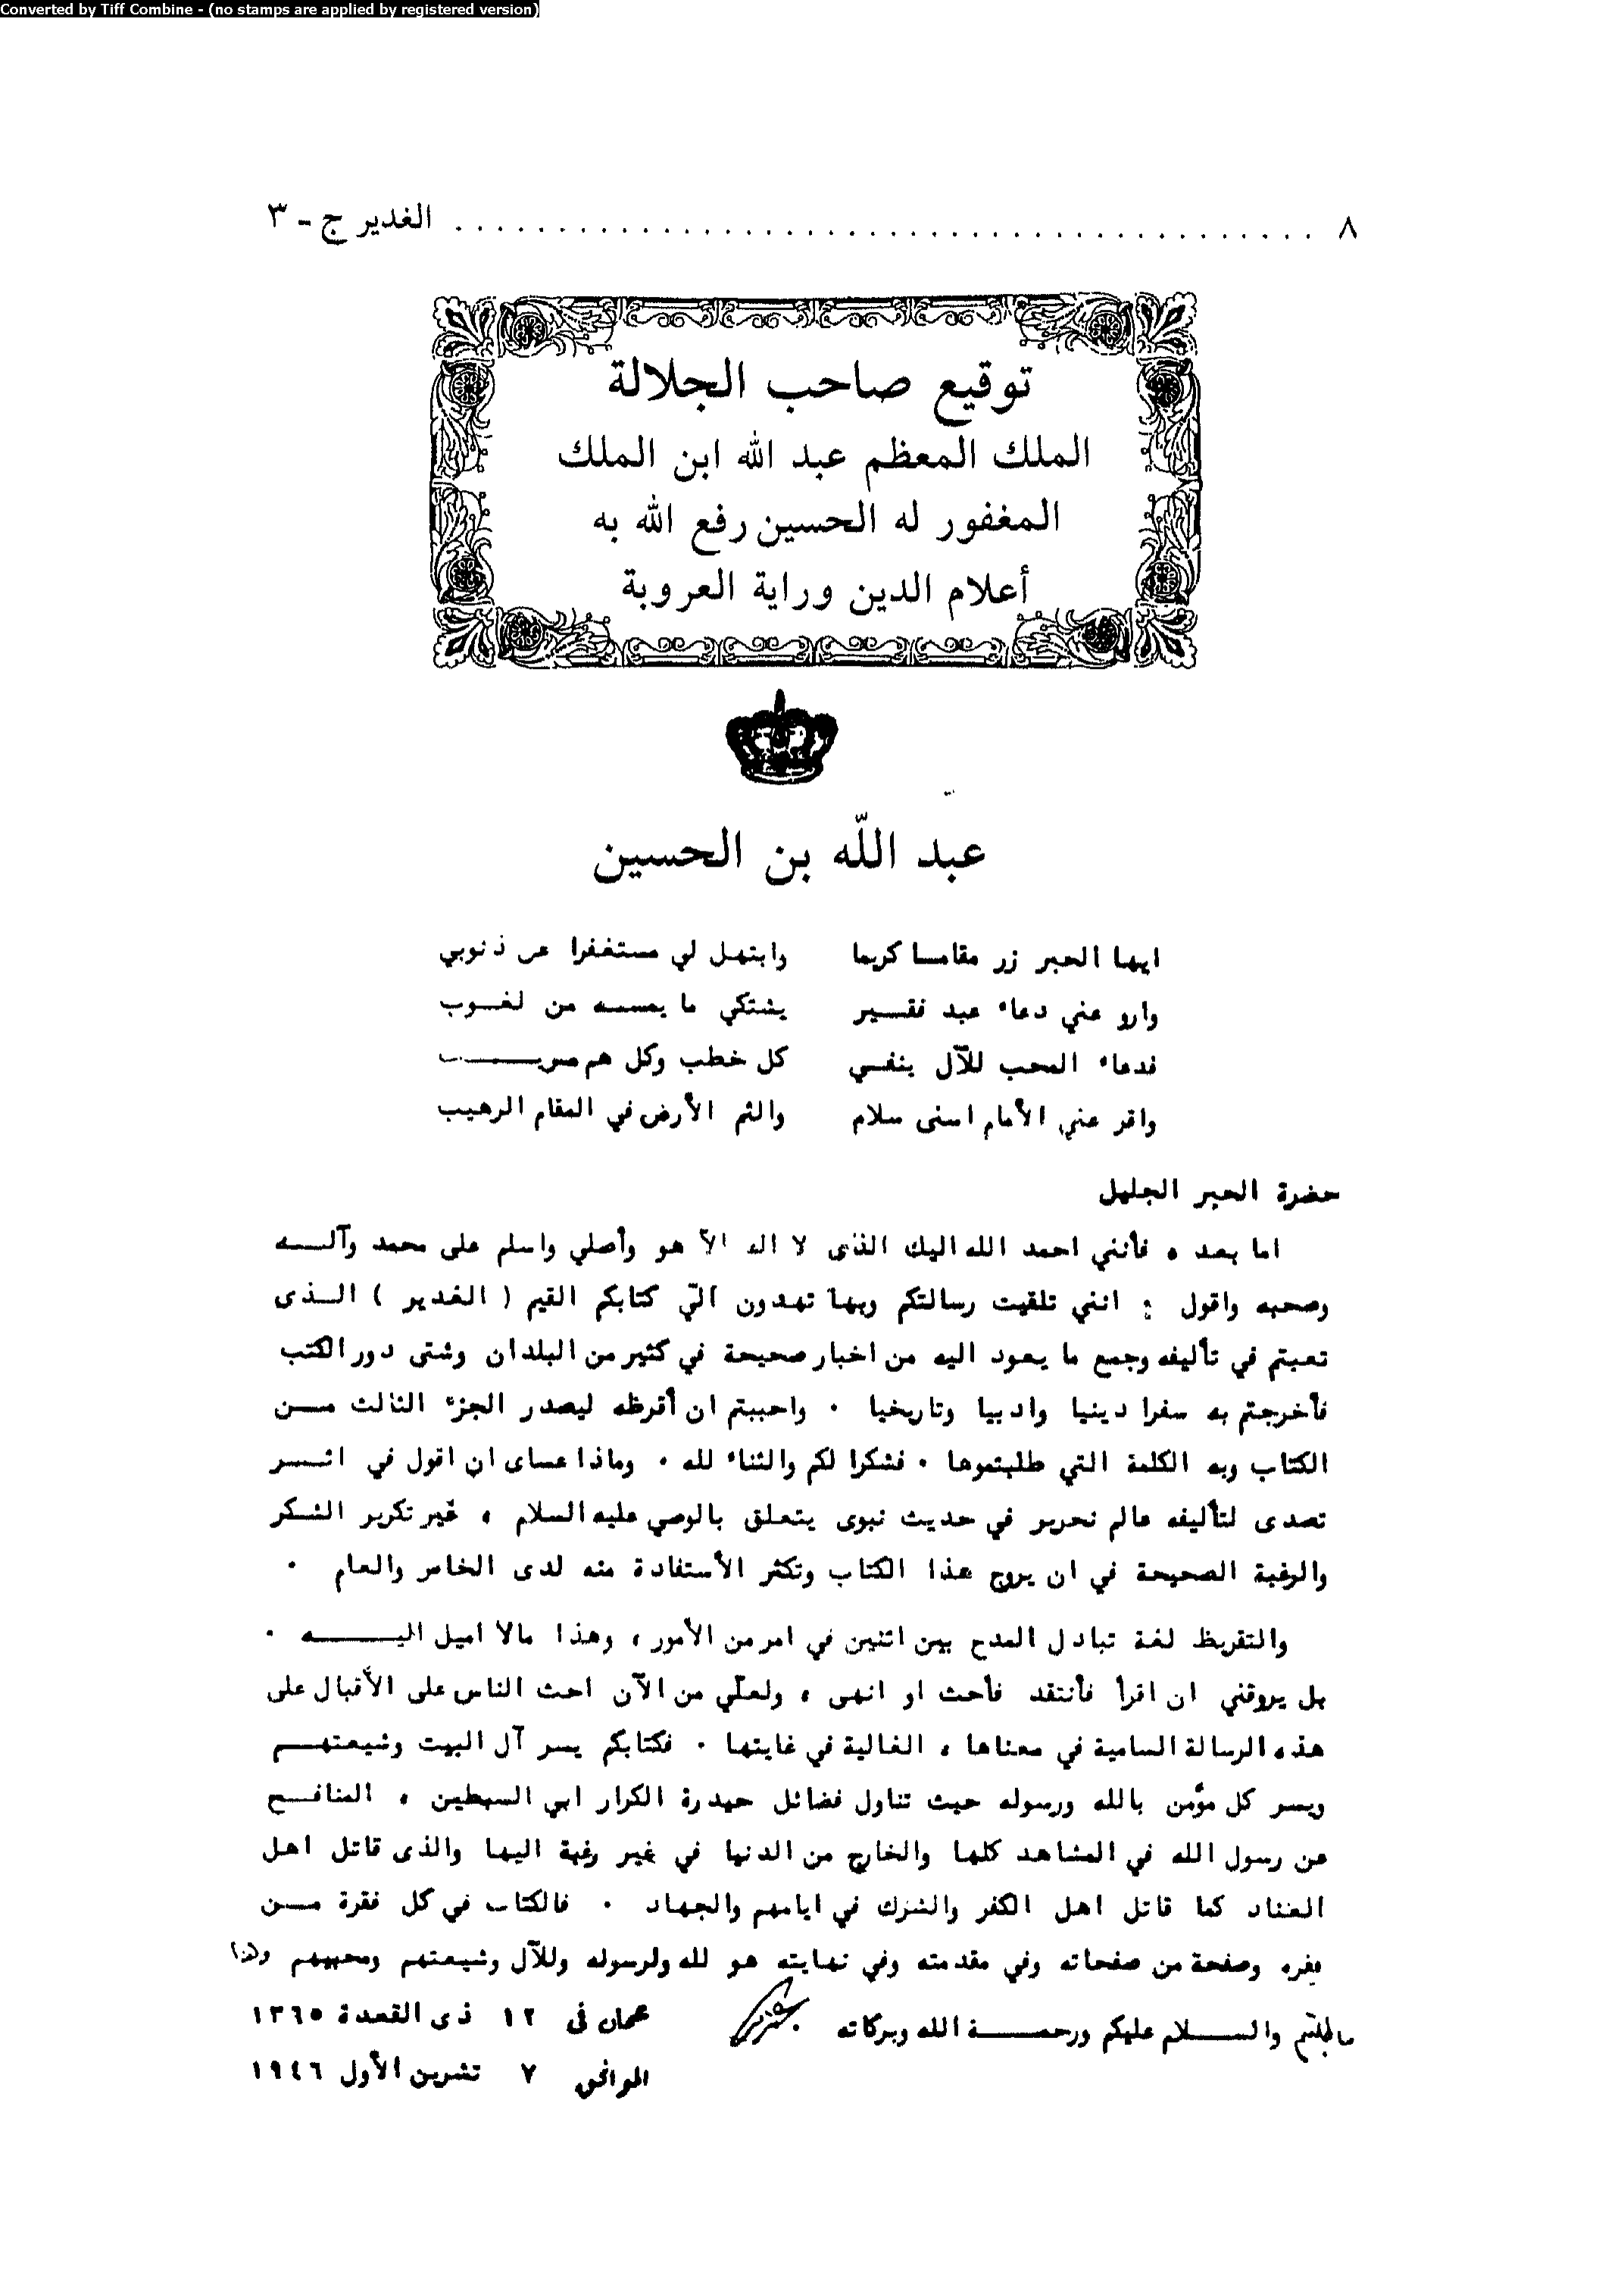 Converted by Tiff Combine - (no stamps are applied by registered version)
٨ . . . . . . . . . . . . . . . . . . . . . . . . . . . . . . . . . . . . . . . . . الغدير ج - ٣
توقيع صاحب الجلالة
الملك المعظم عبد الله ابن الملك
المغفور له الحسين رفع الله به
أعلام الدين وراية العروبة
عبد اللّه بن الحسين
ايها الحبر زر مقامــا كريما وابتهـل لي مستغفرا عن ذنوبي
وارو عني دعاء عبد فقــير يشتكي ما يمســه من لغــوب
فدعاء المحب للآل ينفــي كل خطب وكل هم مريــــب
واقر عني الأمام اسنى سلام والثم الأرض في المقام الرهيب
حضرة الحبر الجليل
اما بعد ، فأنني احمد الله اليك الذى لا اله الا هو وأصلي واسلم على محمد وآلــه
وصحبه واقول : انني تلقيت رسالتكم وبها تهدون اليّ كتابكم القيم ( الغدير ) الــذى
تعبتم في تأليفه وجمع ما يعود اليه من اخبار صحيحة في كثير من البلدان وشتى دور الكتب
فأخرجتم به سفرا دينيا وادبيا وتاريخيا . واحببتم ان أقرظه ليصدر الجزء الثالث مــن
الكتاب وبه الكلمة التي طلبتموها . فشكرا لكم والثناء لله . وماذا عساى ان اقول في اثــر
تصدى لتأليفه عالم نحرير في حديث نبوى يتعلق بالوصي عليه السلام ، غير تكرير الشكر
والرغبة الصحيحة في ان يروج هذا الكتاب وتكثر الأستفادة منه لدى الخاص والعام .
والتقريظ لغة تبادل المدح بين اثنين في امر من الأمور ، وهذا مالا اميل اليــــه .
بل يروقني ان اقرأ فأنتقد فأحث او انهى ، ولعلّي من الآن احث الناس على الأقبال على
هذه الرسالة السامية في معناها ، الغالية في غايتها . فكتابكم يسر آل البيت وشيعتهــم
ويسر كل مؤمن بالله ورسوله حيث تناول فضائل حيدرة الكرار ابي السبطين ، المنافــح
عن رسول الله في المشاهد كلها والخارج من الدنيا في غير رغبة اليها والذى قاتل اهل
العناد كما قاتل اهل الكفر والشرك في ايامهم والجهاد . فالكتاب في كل فقرة مــن
فقره وصفحة من صفحاته وفي مقدمته وفي نهايته هو لله ولرسوله وللآل وشيعتهم ومحبيهم
والســـلام عليكم ورحمــــة الله وبركاته
عمان في ١٢ ذى القعدة ١٣٦٥
الموافق ٧ تشرين الأول ١٩٤٦